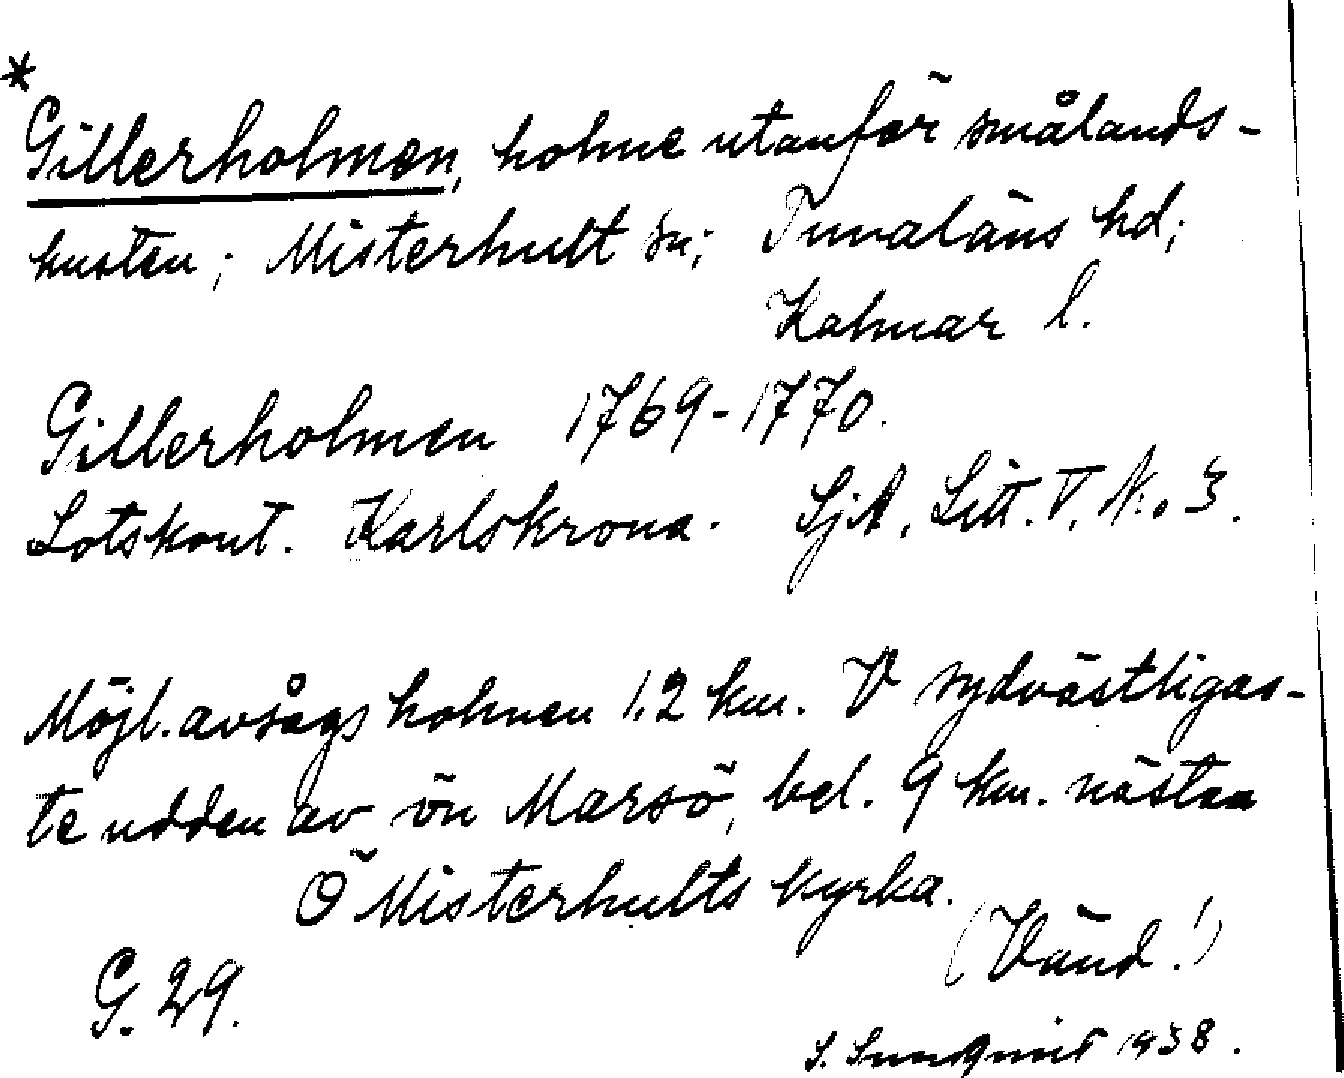 *
Gillerholmen, holme utanför smålands-
kusten; Misterhult sn; Tunaläns hd;
Kalmar l.
Gillerholmen 1769-1770.
Lotskont. Karlskrona. SjA, Litt. V, No 3.
Möjl. avsågs holmen 1.2 km. V sydvästligas-
te udden av ön Marsö, bel. 9 km. nästan
Ö Misterhults kyrka.
(Vänd!)
G. 29.
S. Sunqvist 1938.